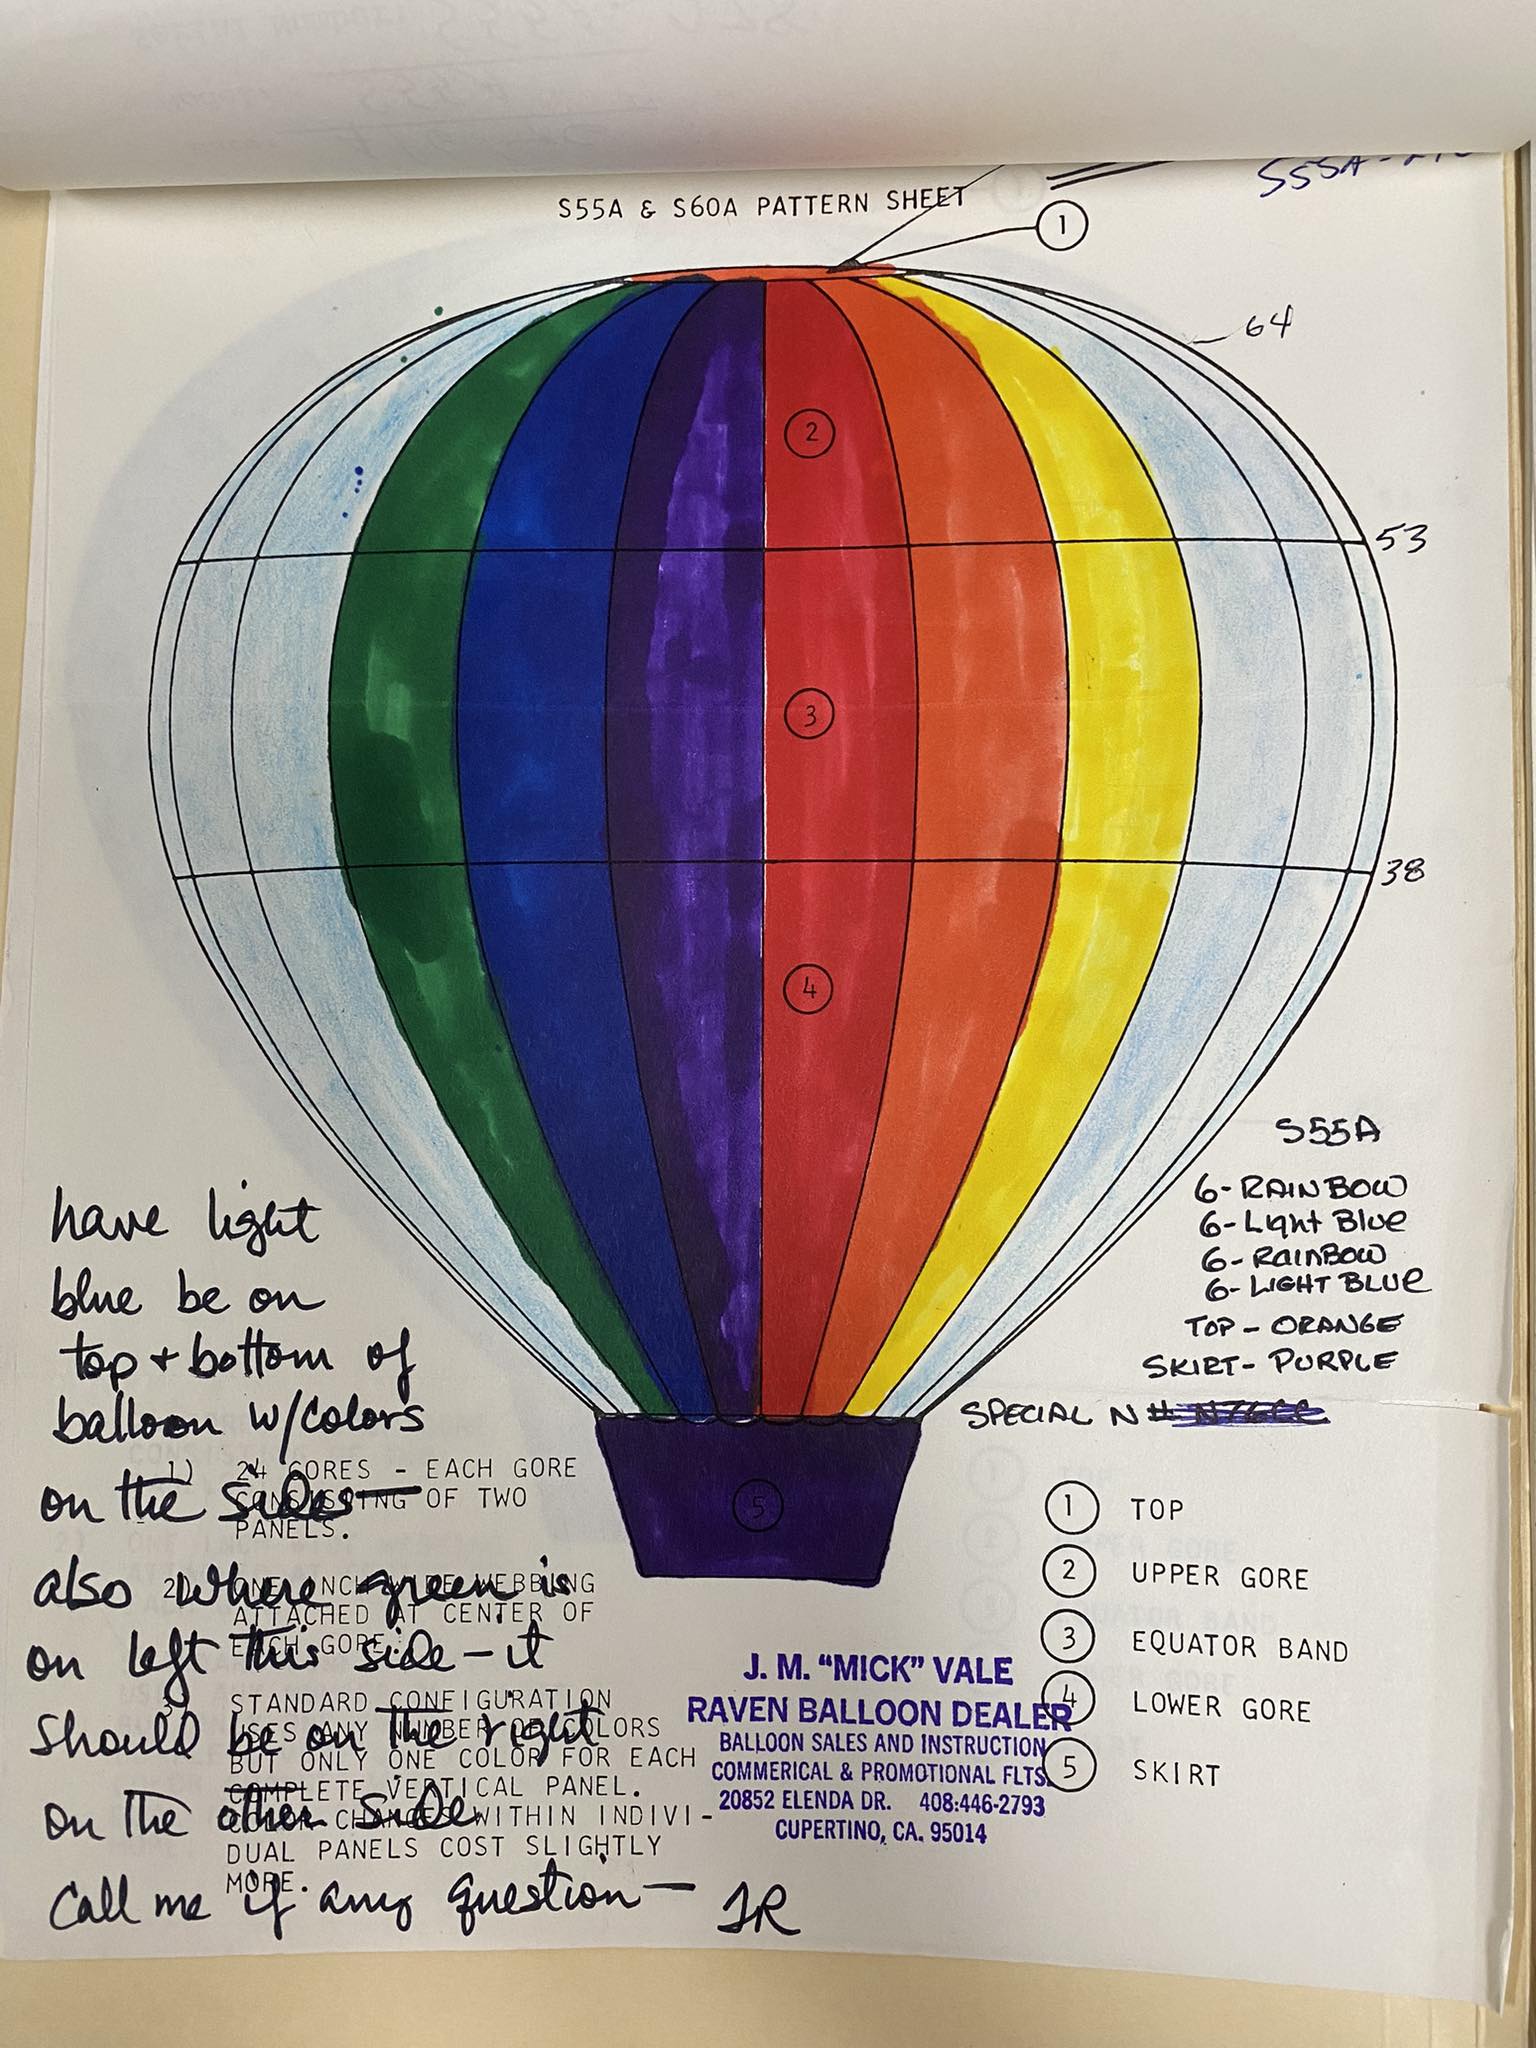 S55A & S60A PATTERN SHEET
1
64
2
53
3
38
4
S55A
6-RAINBOW
6-Light Blue
6-RAINBOW
6-LIGHT BLUE
TOP - ORANGE
SKIRT- PURPLE
SPECIAL N#
have light
blue be on
top + bottom of
balloon w/colors
on the sides—
also where green is
on left this side - it
should be on the right
on the other side
Call me if any question — JR
1) 24 GORES - EACH GORE
CONSISTING OF TWO
PANELS.
2) ONE INCH WIDE WEBBING
ATTACHED AT CENTER OF
EACH GORE.
3) STANDARD CONFIGURATION
USES ANY NUMBER OF COLORS
BUT ONLY ONE COLOR FOR EACH
COMPLETE VERTICAL PANEL.
COLOR CHANGES WITHIN INDIVI-
DUAL PANELS COST SLIGHTLY
MORE.
5
J. M. "MICK" VALE
RAVEN BALLOON DEALER
BALLOON SALES AND INSTRUCTION
COMMERICAL & PROMOTIONAL FLTS.
20852 ELENDA DR. 408:446-2793
CUPERTINO, CA. 95014
1 TOP
2 UPPER GORE
3 EQUATOR BAND
4 LOWER GORE
5 SKIRT